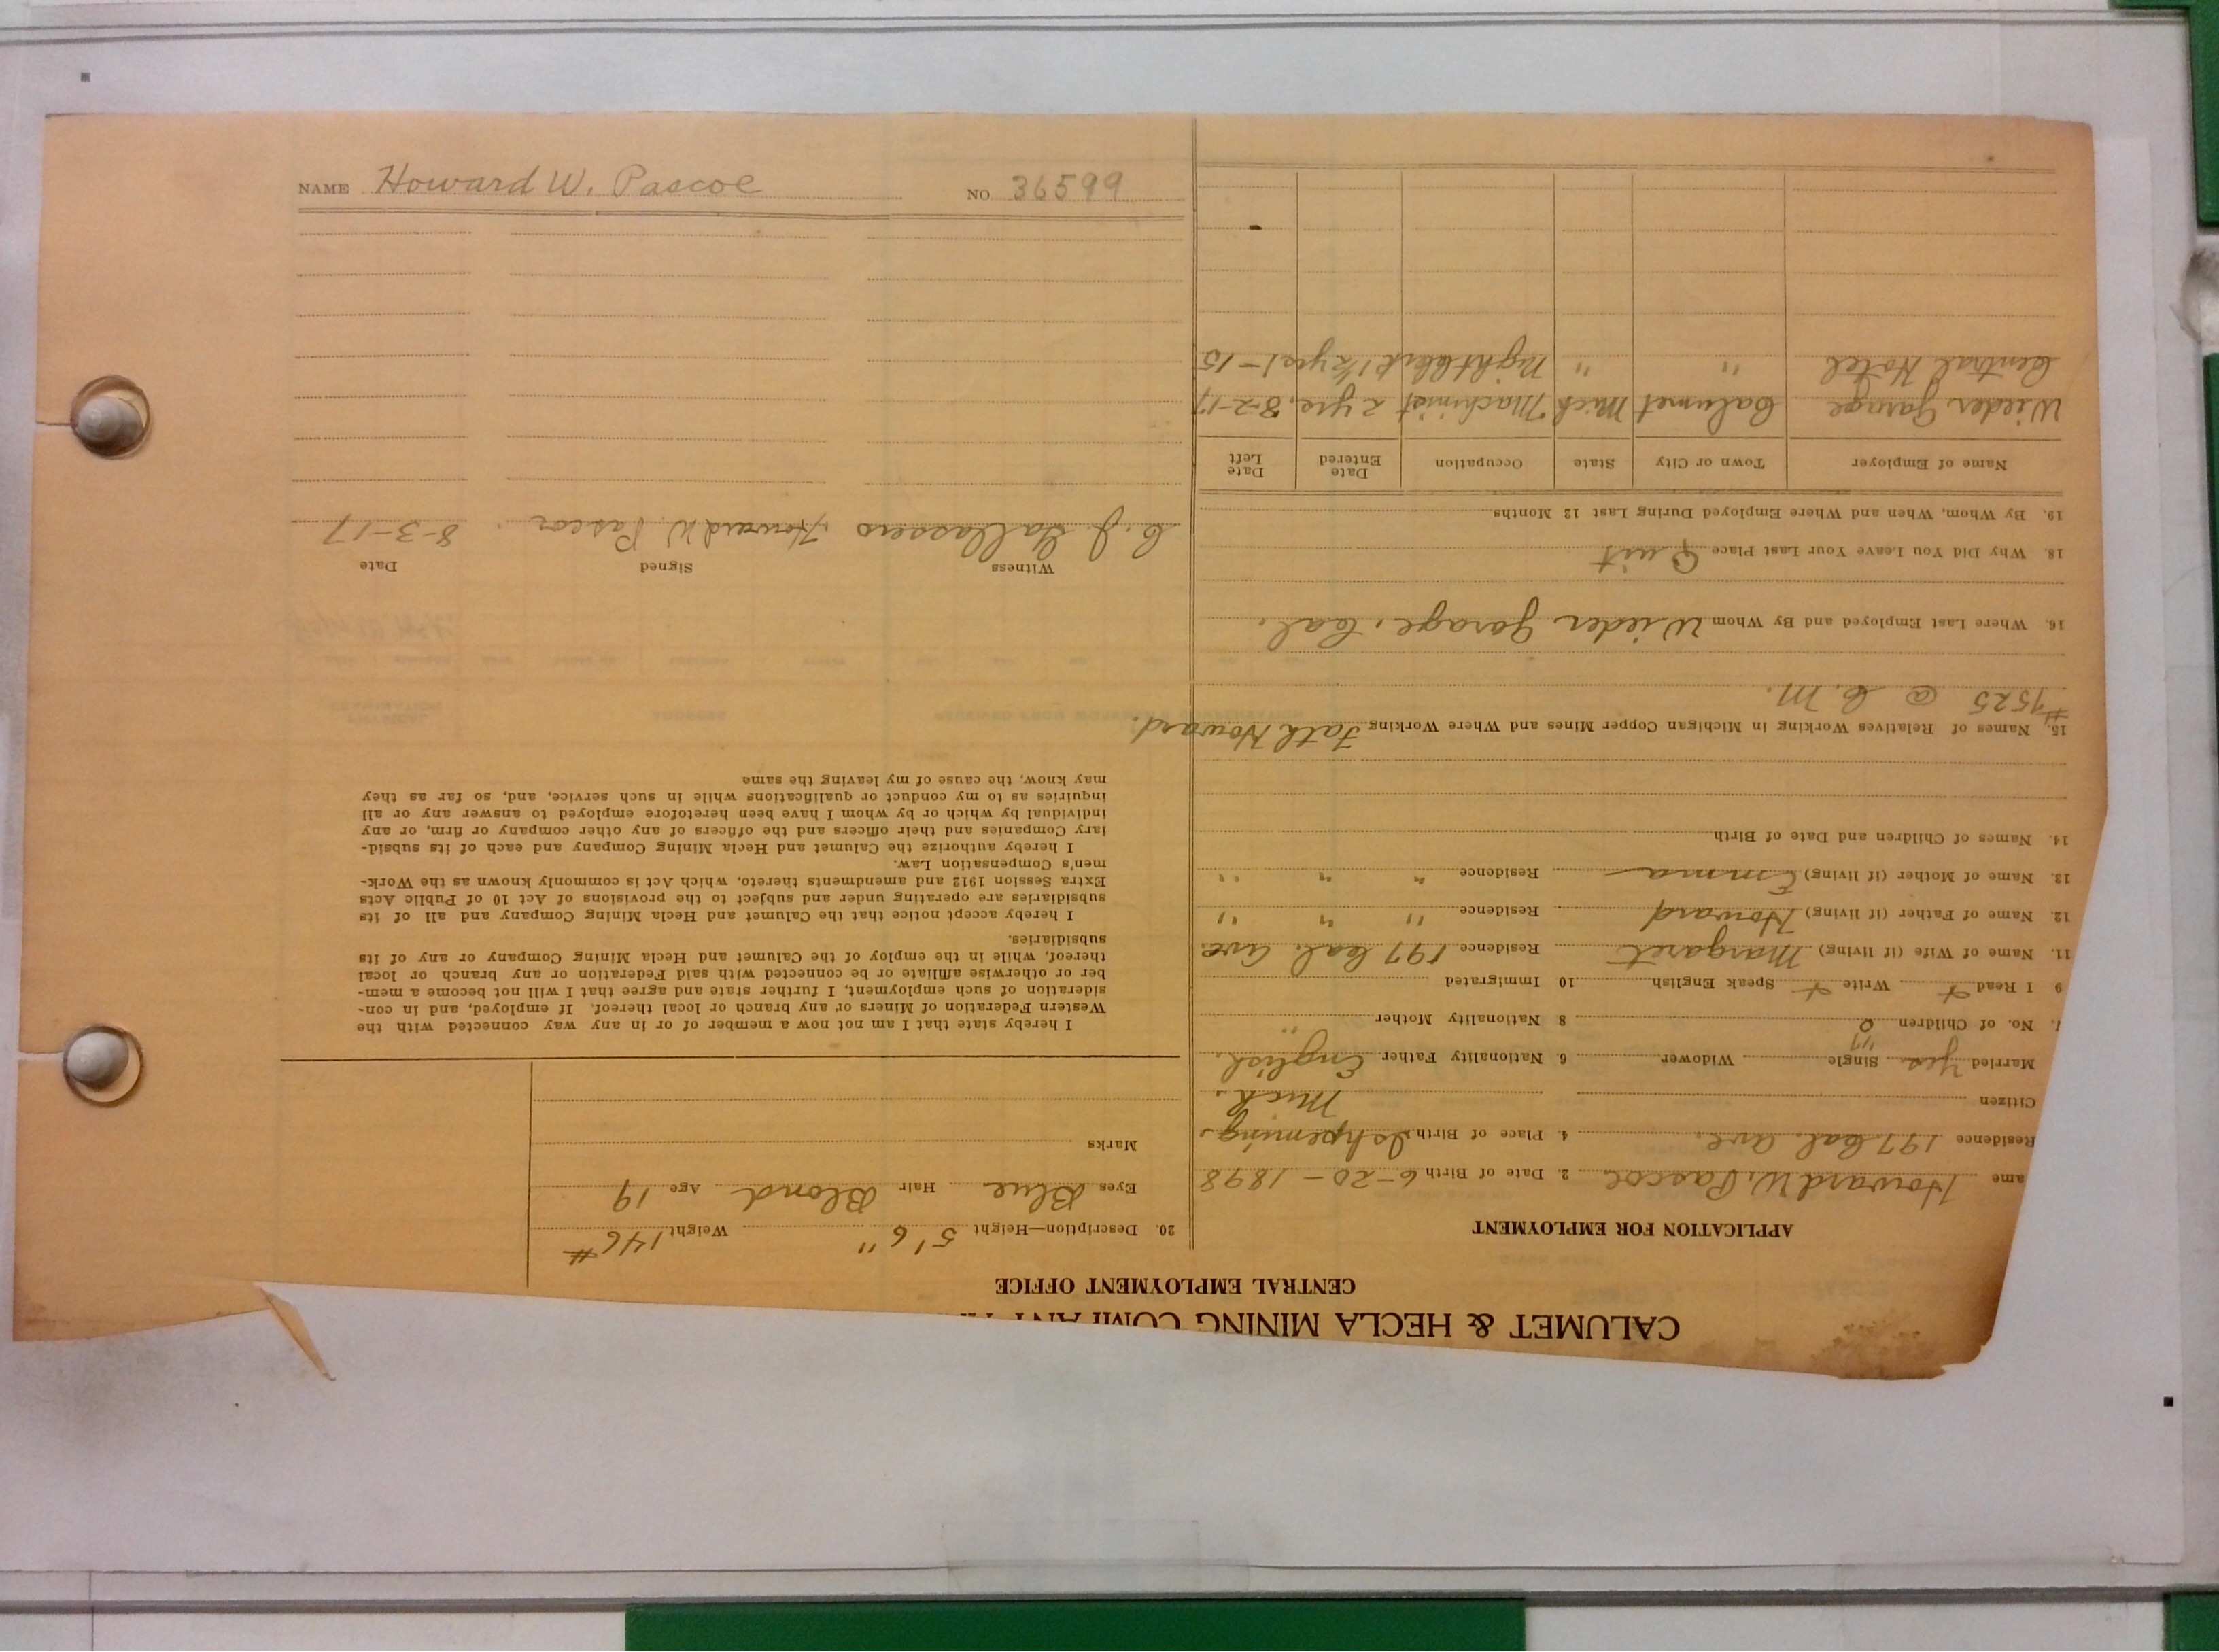 CALUMET & HECLA MINING COMPANY
CENTRAL EMPLOYMENT OFFICE
APPLICATION FOR EMPLOYMENT
ame Howard W. Pascoe 2. Date of Birth 6-20-1898
Residence 197 Cal. Ave. 4. Place of Birth Ishpeming,
Citizen Mich.
Married Yes. Single Widower 6. Nationality Father English.
No. of Children 0 8 Nationality Mother "
9 I Read + Write + Speak English 10 Immigrated
11. Name of Wife (if living) Margaret Residence 197 Cal. Ave.
12. Name of Father (if living) Howard Residence " " "
13. Name of Mother (if living) Emma Residence " " "
14. Names of Children and Date of Birth
15. Names of Relatives Working in Michigan Copper Mines and Where Working Fath Howard.
#7525 @ C. M.
16. Where Last Employed and By Whom Wieder Garage, Cal.
18. Why Did You Leave Your Last Place Quit
19. By Whom, When and Where Employed During Last 12 Months
Name of Employer Town or City State Occupation Date Entered Date Left
Wieder Garage Calumet Mich Machinist 2 yrs. 8-2-17
Central Hotel " " Night Clerk 1½ yrs 1-15
20. Description—Height 5'6" Weight 146#
Eyes Blue Hair Blond Age 19
Marks
I hereby state that I am not now a member of or in any way connected with the
Western Federation of Miners or any branch or local thereof. If employed, and in con-
sideration of such employment, I further state and agree that I will not become a mem-
ber or otherwise affiliate or be connected with said Federation or any branch or local
thereof, while in the employ of the Calumet and Hecla Mining Company or any of its
subsidiaries.
I hereby accept notice that the Calumet and Hecla Mining Company and all of its
subsidiaries are operating under and subject to the provisions of Act 10 of Public Acts
Extra Session 1912 and amendments thereto, which Act is commonly known as the Work-
men's Compensation Law.
I hereby authorize the Calumet and Hecla Mining Company and each of its subsid-
iary Companies and their officers and the officers of any other company or firm, or any
individual by which or by whom I have been heretofore employed to answer any or all
inquiries as to my conduct or qualifications while in such service, and, so far as they
may know, the cause of my leaving the same
Witness Signed Date
C. J. Howard W. Pascoe. 8-3-17
NAME Howard W. Pascoe NO 36599